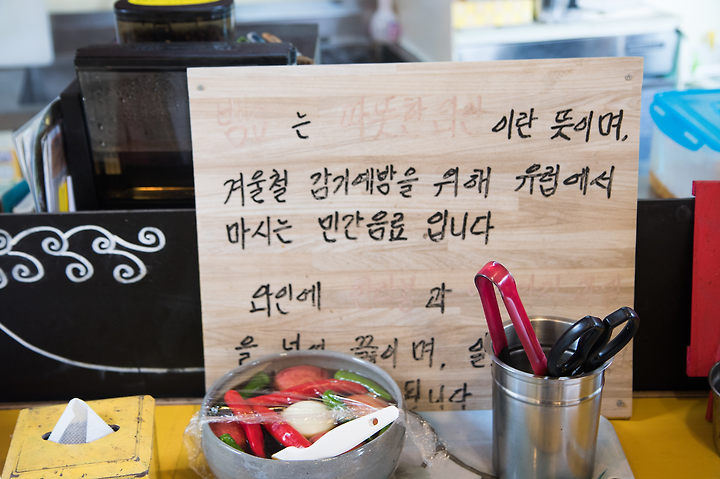 뱅쇼 는 따뜻한 와인 이란 뜻이며,
겨울철 감기예방을 위해 유럽에서
마시는 민간음료 입니다
와인에 과
을 넣어 끓이며,
됩니다